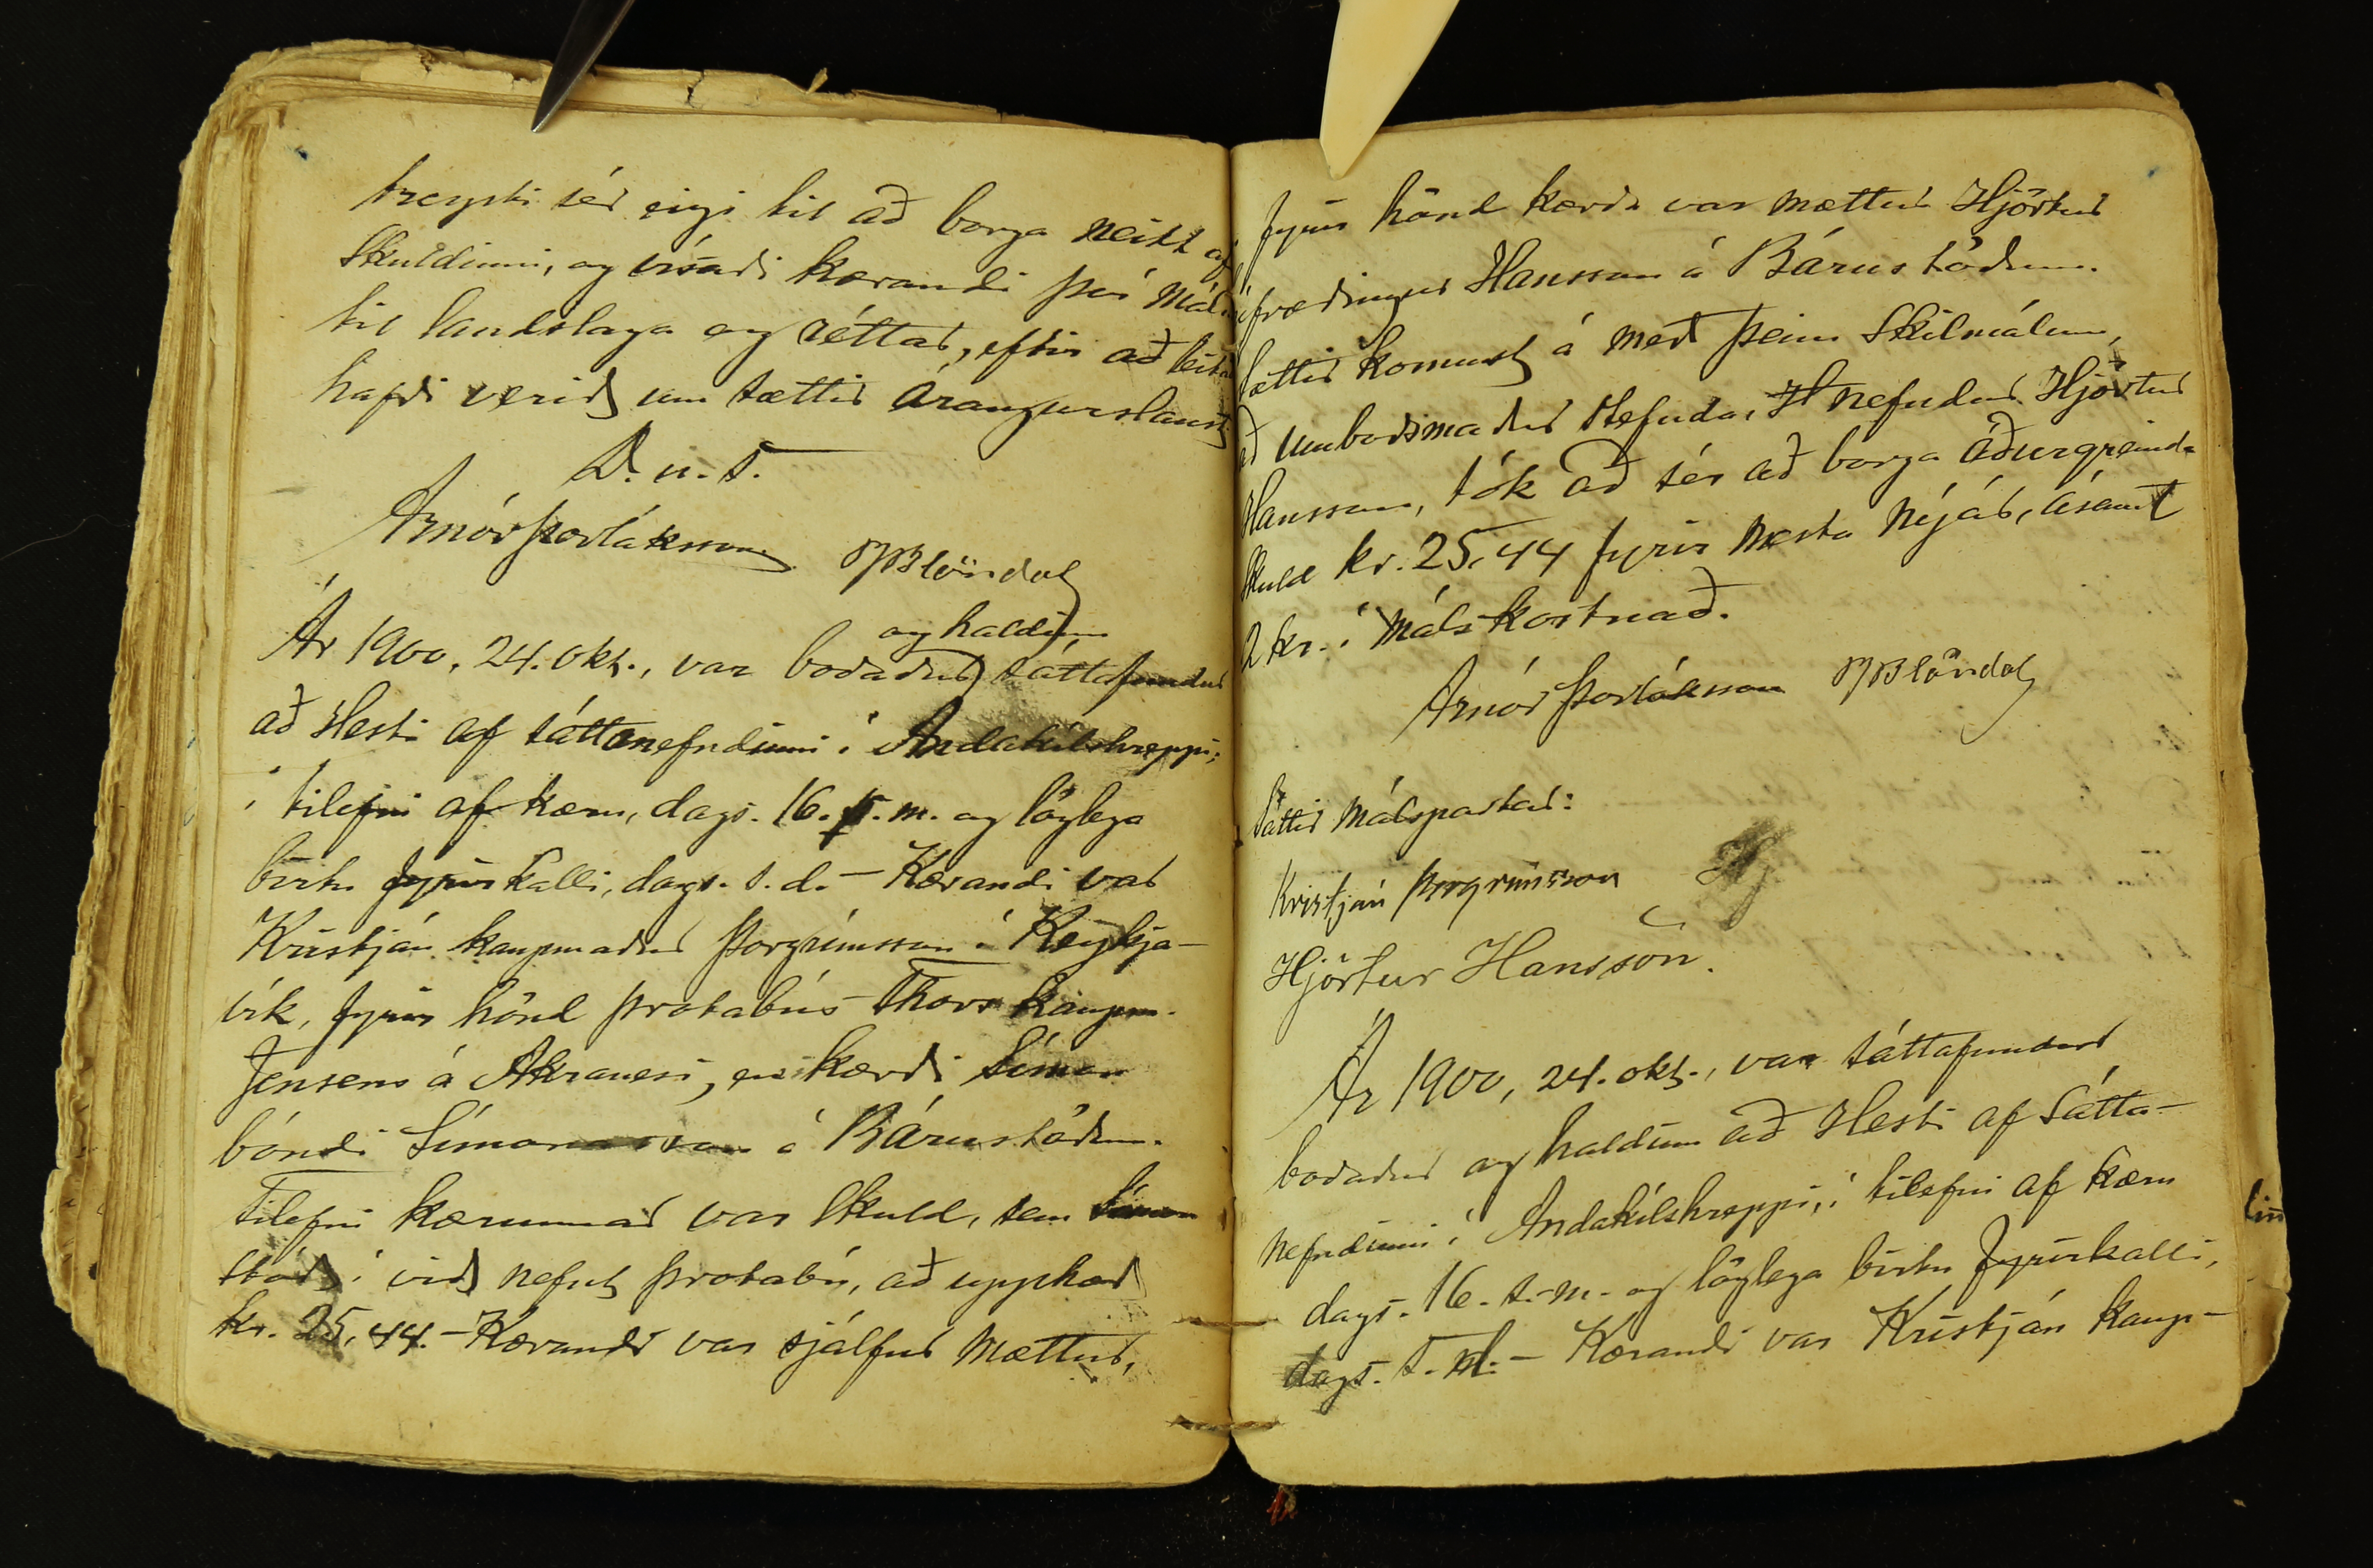 treysti sér eigi til að borga neitt af
skuldinni, og vísaði kærandi því máli
til landslaga og réttar, eftir að leitað
hafði verið um sættir árangurslaust.
D. u. s.
Arnór Þorláksson BBlöndal
og haldinn
Ár 1900, 24. okt., var boðaður sáttafundur
að Hesti af sáttanefndinni í Andakílshreppi,
í tilefni af kæru, dags. 16. þ. m. og löglega
birtu fyrirkalli, dags. s. d. – Kærandi var
Kristján kaupmaður Þorgrímsson í Reykja-
vík, fyrir hönd þrotabús Thors kaupm.
Jensens á Akranesi, en kærði Símon
bóndi Símonarson á Bárustöðum.
Tilefni kærunnar var skuld, sem Símon
stóð í við nefnt þrotabú, að upphæð
kr. 25,44. – Kærandi var sjálfur mættur,
fyrir hönd kærða var mættur Hjörtur
fræðingur Hansson á Bárustöðum.
Sættir komust á með þeim skilmálum,
að umboðsmaður stefnda, nefndur Hjörtur
Hansson, tók að sér að borga áðurgreinda
skuld kr. 25,44 fyrir næsta nýjár, ásamt
2 kr. í málskostnað.
Arnór Þorláksson BBlöndal
Sáttir málspartar:
Kristján Þorgrímsson Hj
Hjörtur Hansson.
Ár 1900, 24. okt., var sáttafundur
boðaður og haldinn að Hesti af sátta-
nefndinni í Andakílshreppi, í tilefni af kæru
dags. 16. s. m. og löglega birtu fyrirkalli,
dags. s. d. – Kærandi var Kristján kaup-